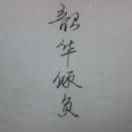 韶华倾负